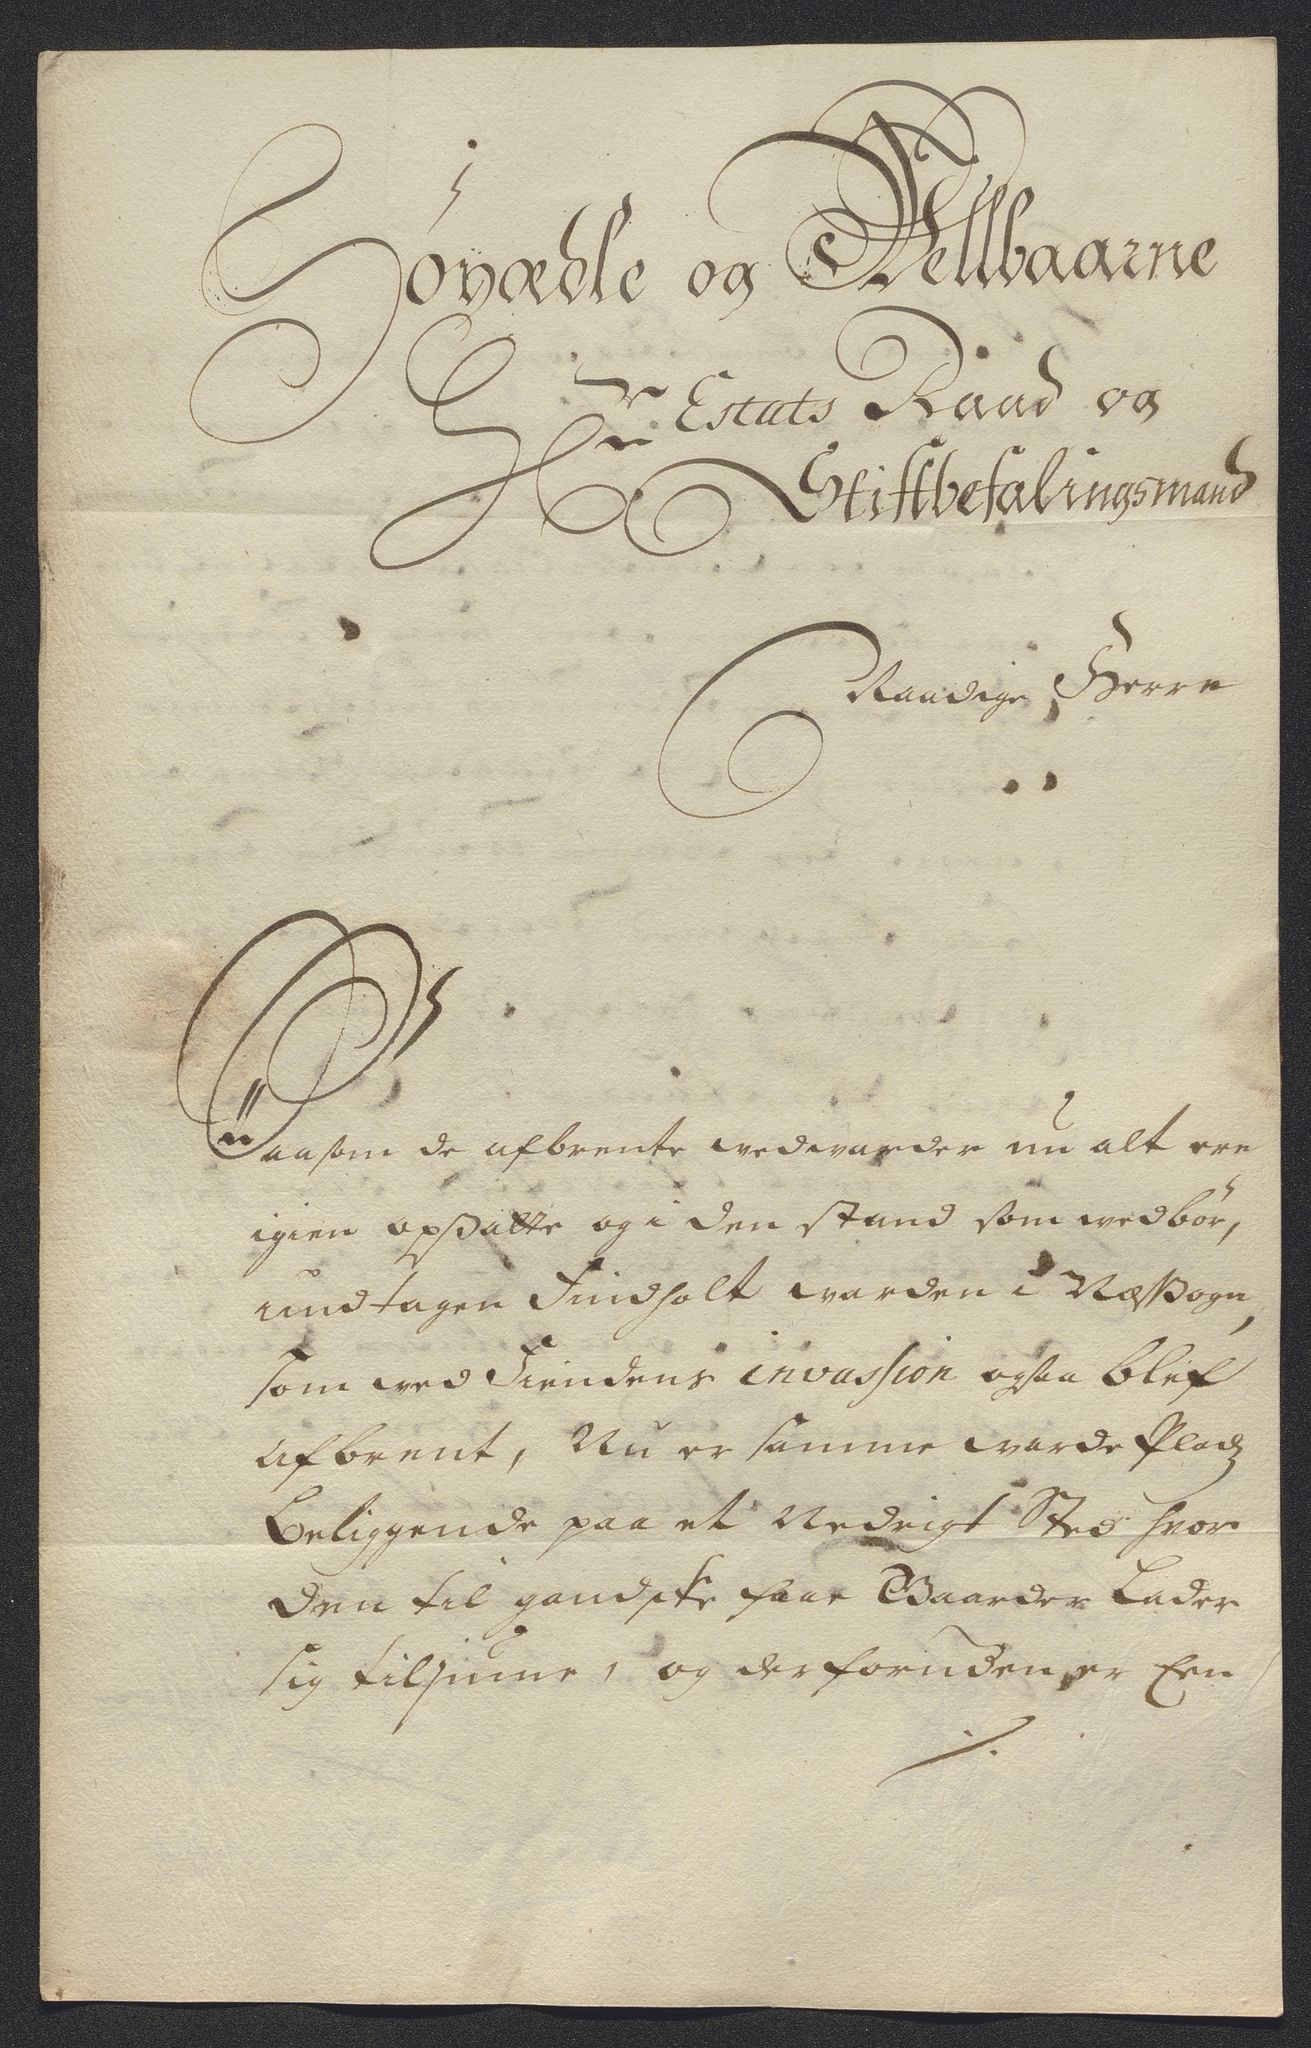 Höyædle og Wellbaarne
Hr Estats Raad og
Stiftbefalingsmand
Naadige Herre
Saasom de afbrente wedwarder nu alt ere
igien opsatte og i den stand som wedbör,
undtagen Findholt warden i Næssogn,
som wed Fiendens invassion ogsaa blef
afbrent, Nu er samme warde Pladz
Beliggende paa et Nedrigt Sted hvor
den til gandske faae Waarder Lader
sig tilsiune, og desforuden er Een
./.